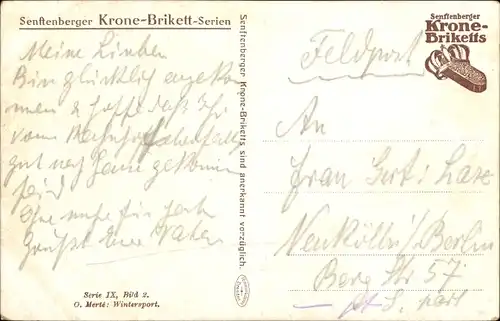 Senftenberger Krone-Brikett-Serien
Meine Lieben
Bin glücklich angekom
men & hoffe daß Ihr
vom Bahnhof
gut nach Hause gekommen
seid
für
Grüßt Eure Vater
Serie IX, Bild 2.
O. Merté: Wintersport.
Senftenberger Krone-Briketts sind anerkannt vorzüglich.
Senftenberger
Krone-
Briketts
Feldpost
An
Frau Gert:
Neukölln/Berlin
Berg Str 57
part